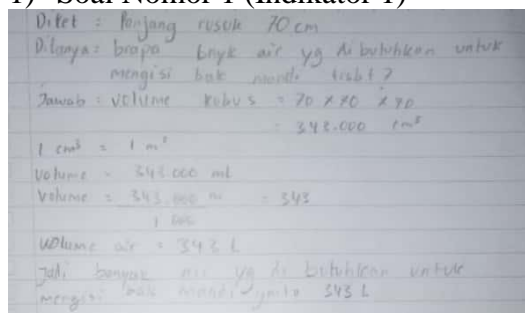 1) Soal Nomor 1 (Indikator 1)
Diket : Panjang rusuk 70 cm
Ditanya = brapa bnyk air yg di butuhkan untuk
mengisi bak mandi tisbt ?
Jawab : volume kubus = 70 x 70 x 70
= 343.000 cm³
1 cm³ = 1 m³
Volume = 343.000 ml
Volume = 343.000 m = 343
1 000
Volume air = 343 L
Jadi banyak air yg di butuhkan untuk
mengisi bak mandi yaitu 343 L